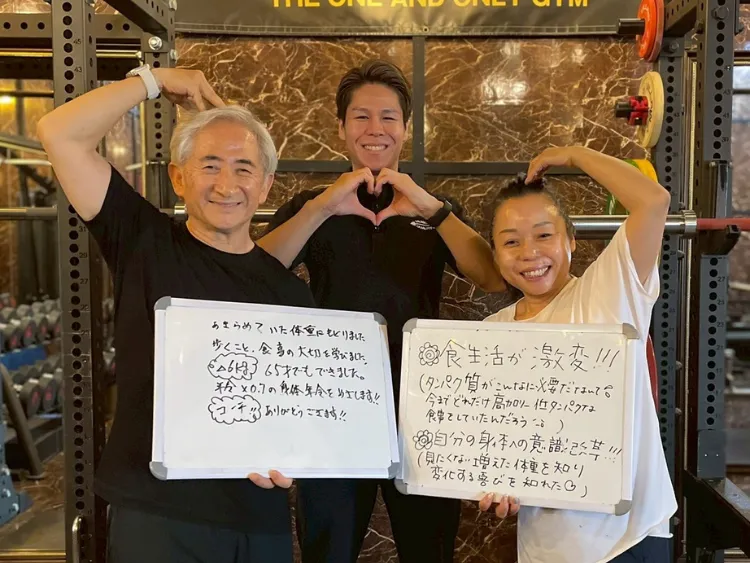 THE ONE AND ONLY GYM
あきらめていた体重にもどりました
歩くこと、食事の大切を学びました。
△6kg 65才でもできました。
年令×0.7の身体年令をめざします!!
コンチ!! ありがとうございます!!
食生活が激変!!!
(タンパク質がこんなに必要だなんて。
今までどれだけ高カロリー低タンパクな
食事をしていたんだろう…。)
自分の身体への意識改革!!!
(見たくない増えた体重を知り
変化する喜びを知れた)